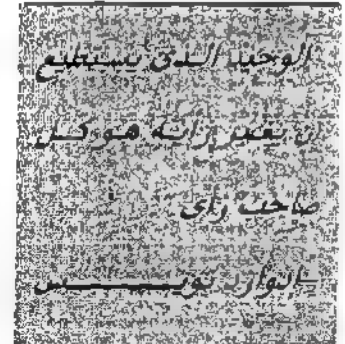 الوحيد الذي يستطيع
ان يغير رايه هو كل
صاحب راي
ادوارد لويس